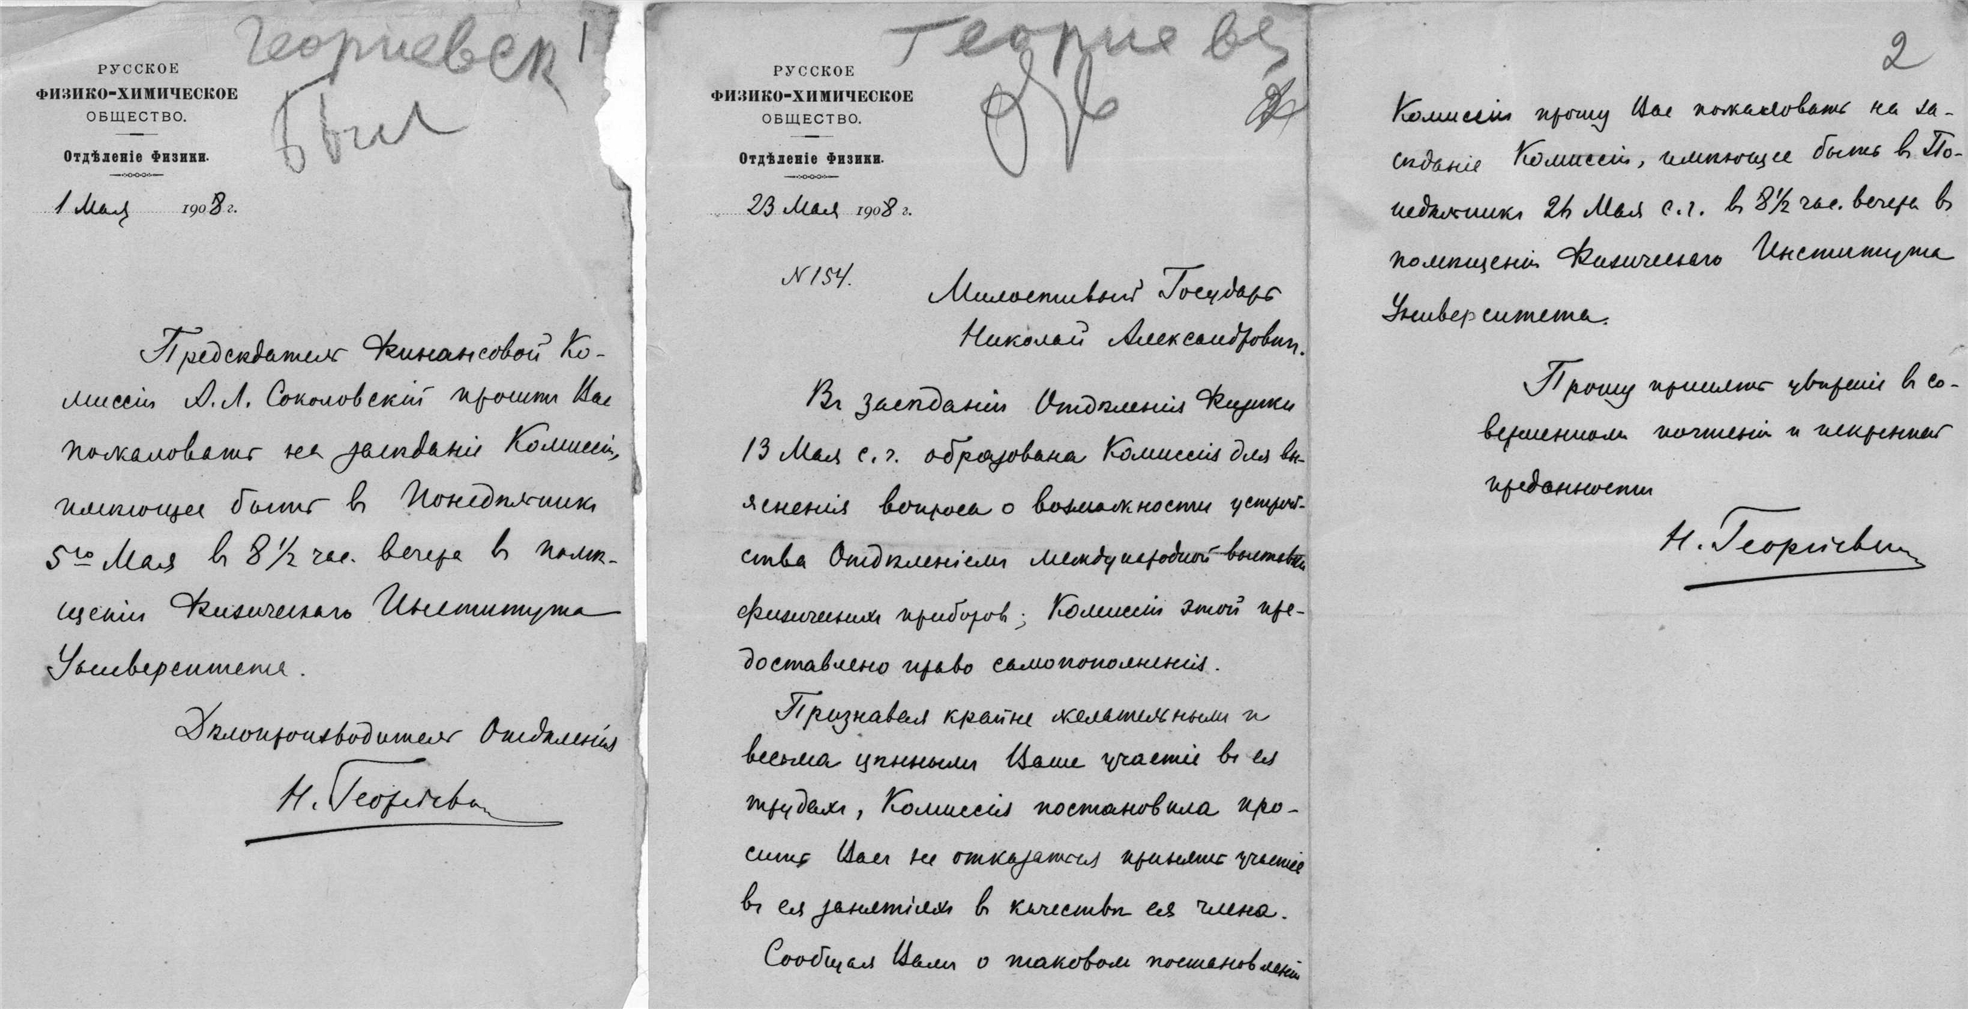 Георгиевск
1
Был
РУССКОЕ
ФИЗИКО-ХИМИЧЕСКОЕ
ОБЩЕСТВО.
Отдѣленіе Физики.
1 Мая 1908 г.
Предсѣдатель Финансовой Ко-
миссіи А. Л. Соколовскій проситъ Вас
пожаловать на засѣданіе Комиссіи,
имѣющее быть въ Понедѣльникъ
5го Мая въ 8 1/2 час. вечера въ помѣ-
щеніи Физическаго Института
Университета.
Дѣлопроизводитель Отдѣленія
Н. Георгіевскій
Георгиевс
РУССКОЕ
ФИЗИКО-ХИМИЧЕСКОЕ
ОБЩЕСТВО.
Отдѣленіе Физики.
23 Мая 1908 г.
N 154.
Милостивый Государь
Николай Александрович.
Въ засѣданіи Отдѣленія Физики
13 Мая с. г. образована Комиссія для вы-
ясненія вопроса о возможности устрой-
ства Отдѣленіемъ международной выставки
физическихъ приборовъ; Комиссіи этой пре-
доставлено право самопополненія.
Признавая крайне желательнымъ и
весьма цѣннымъ Ваше участіе въ ея
трудахъ, Комиссія постановила про-
сить Васъ не отказаться принять участіе
въ ея занятіяхъ въ качествѣ ея члена.
Сообщая Вамъ о таковомъ постановленіи
2
Комиссіи прошу Вас пожаловать на за-
сѣданіе Комиссіи, имѣющее быть въ По-
недѣльникъ 26 Мая с. г. въ 8 1/2 час. вечера въ
помѣщеніи Физическаго Института
Университета.
Прошу принять увѣреніе въ со-
вершенномъ почтеніи и искренней
преданности
Н. Георгіевскій